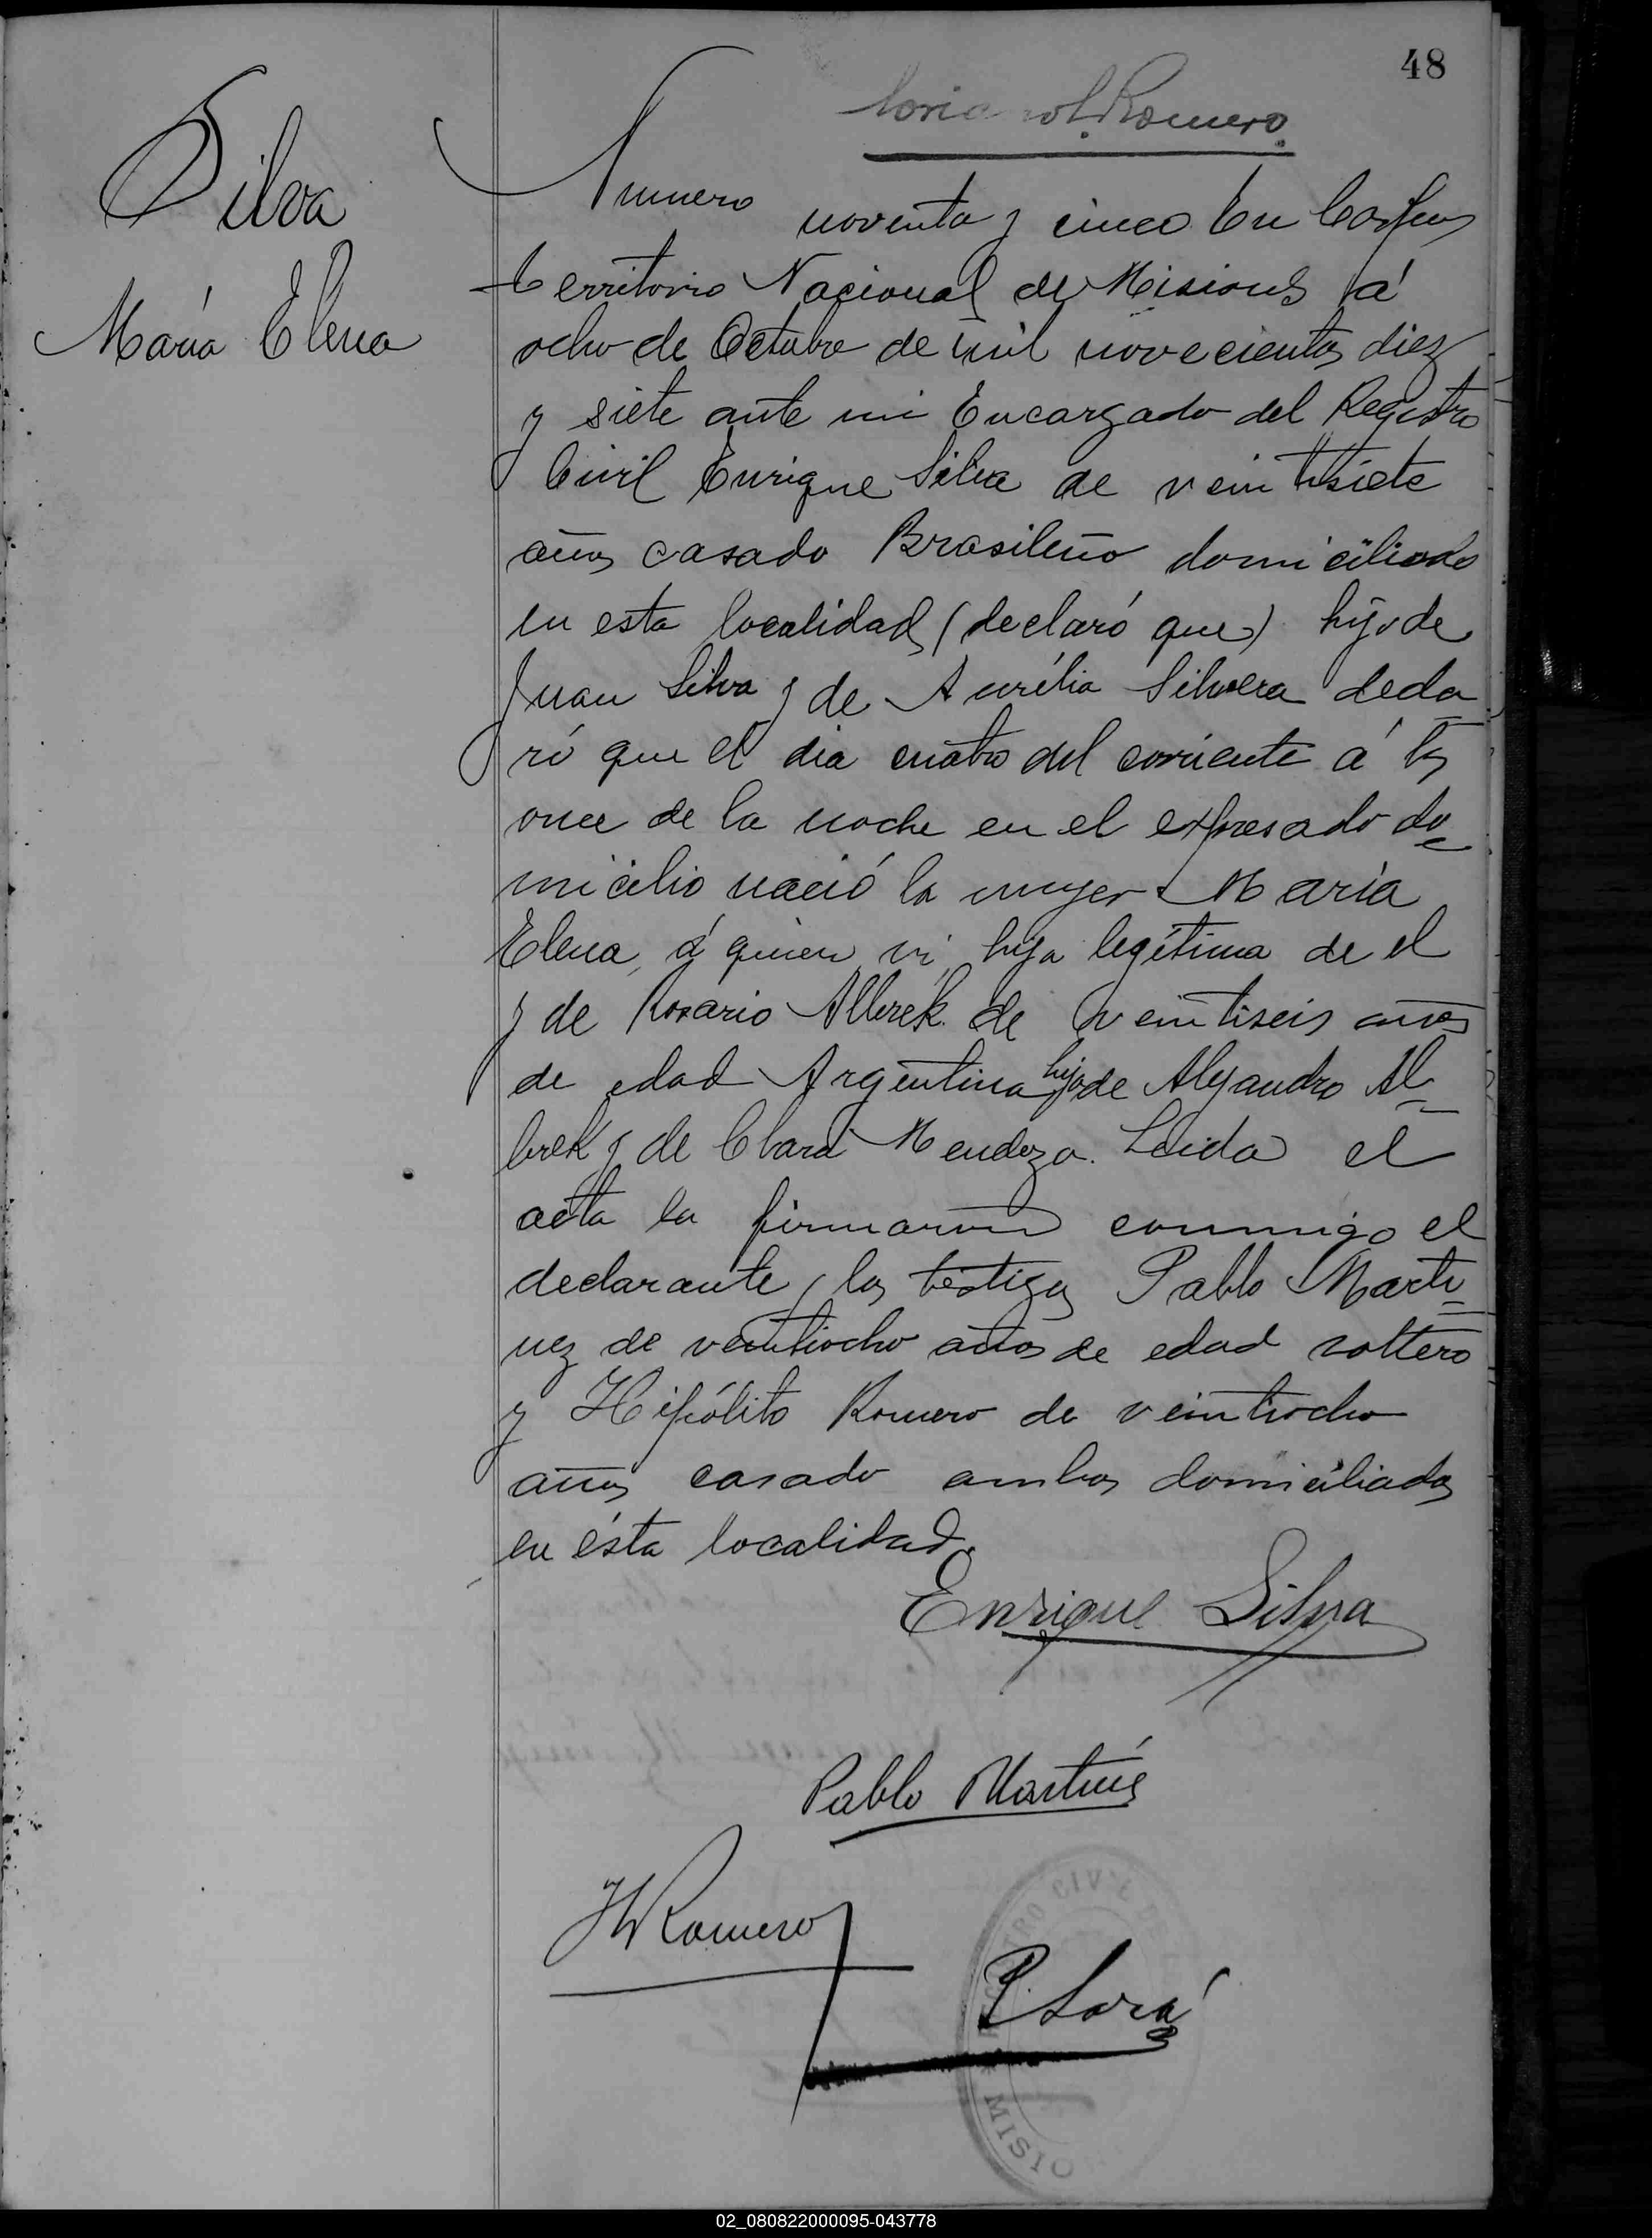 48
Romero
Silva
María Elena
Numero noventa y cinco En Corpus
Territorio Nacional de Misiones á
ocho de Octubre de mil novecientos diez
y siete ante mi Encargado del Registro
Civil Enrique Silva de veintisiete
años casado Brasileño domiciliado
en esta localidad (declaró que) hijo de
Juan Silva y de Aurélia Silvera decla
ró que el dia cuatro del corriente á las
once de la noche en el expresado do=
micilio nació la mujer María
Elena, á quien vi, hija legítima de el
y de Rosario Albrek de veintiseis años
de edad Argentina hija de Alejandro Al=
brek y de Clara Mendoza. Leida el
acta la firmaron conmigo el
declarante, los testigos Pablo Marti=
nez de veintiocho años de edad soltero
y Hipólito Romero de veintiocho
años casado ambos domiciliados
en ésta localidad.
Enrique Silva
Pablo Martinez
H Romero
P. Lora
CIVIL
MISIO
02_080822000095-043778